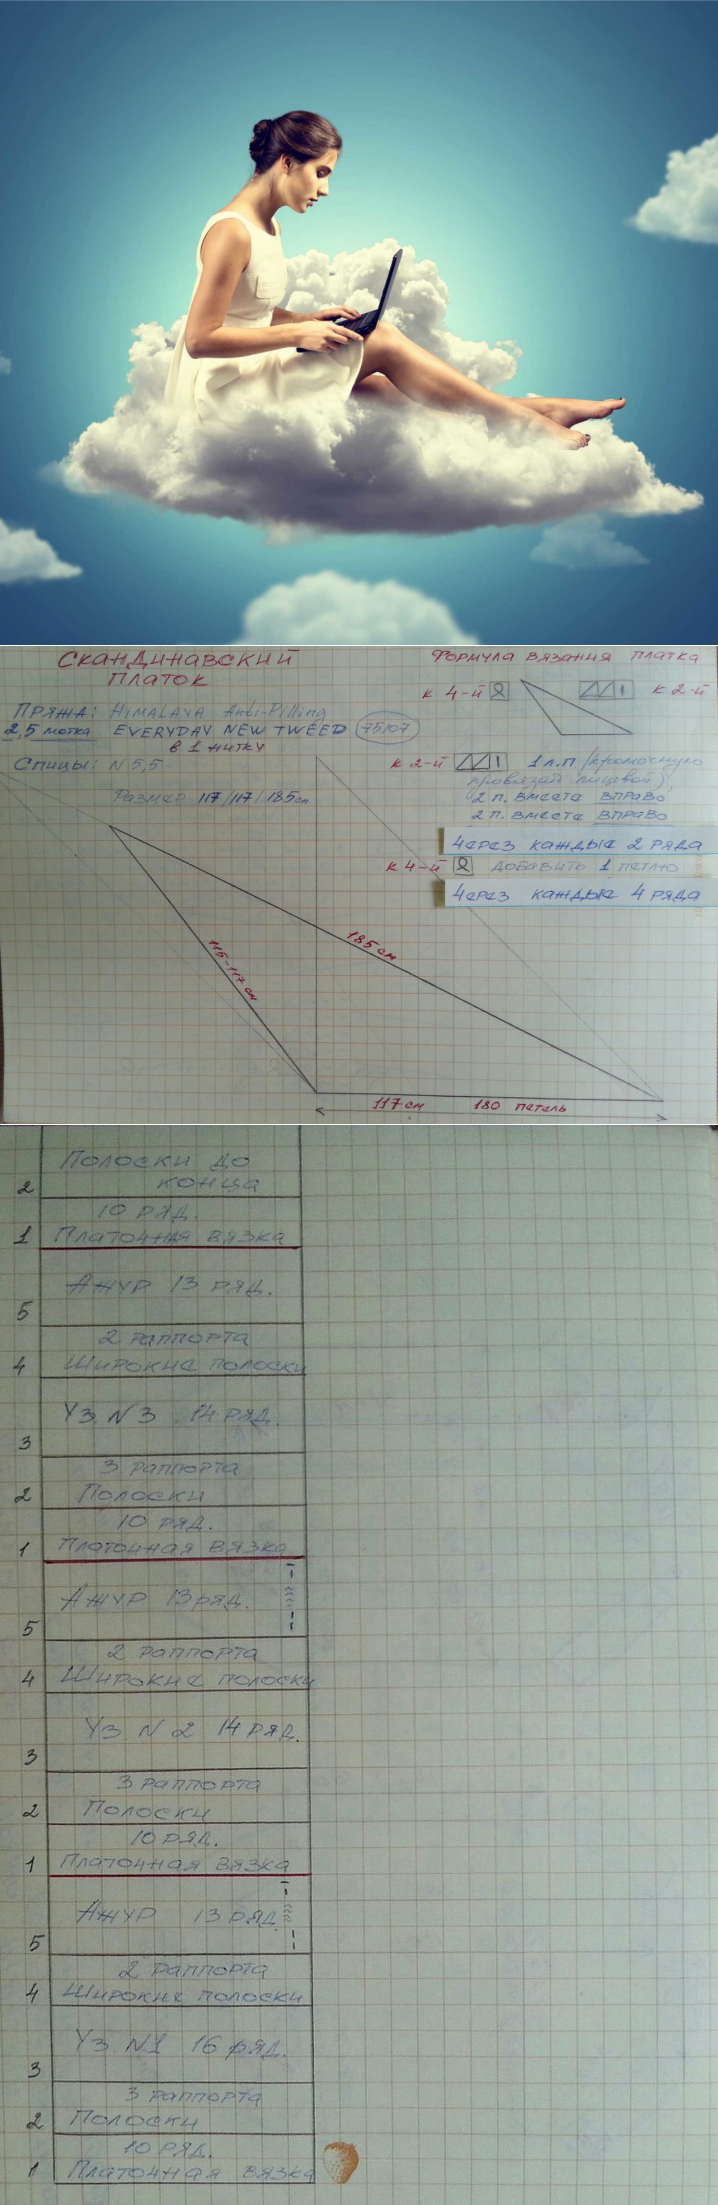 СКАНДИНАВСКИЙ
ПЛАТОК
ПРЯЖА: HIMALAYA Anti-Pilling
2,5 мотка EVERYDAY NEW TWEED 75107
в 1 нитку
Спицы: N 5,5
Размер 117/117/185см
ФОРМУЛА ВЯЗАНИЯ ПЛАТКА
К 4-й
К 2-й
К 2-й 1 л.п /кромочную
провязать лицевой/,
2 п. вместе вправо
2 п. вместе вправо
через каждые 2 ряда
К 4-й добавить 1 петлю
через каждые 4 ряда
115-117 см
185 см
117 см 180 петель
Полоски до
конца
2
10 ряд.
1 Платочная вязка
Ажур 13 ряд.
5
2 раппорта
4 Широкие полоски
Уз. N 3 14 ряд.
3
3 раппорта
2 Полоски
10 ряд.
1 Платочная вязка
Ажур 13 ряд.
5
2 раппорта
4 Широкие полоски
Уз. N 2 14 ряд.
3
3 раппорта
2 Полоски
10 ряд.
1 Платочная вязка
Ажур 13 ряд.
5
2 раппорта
4 Широкие полоски
Уз. N1 16 ряд.
3
3 раппорта
2 Полоски
10 ряд.
1 Платочная вязка